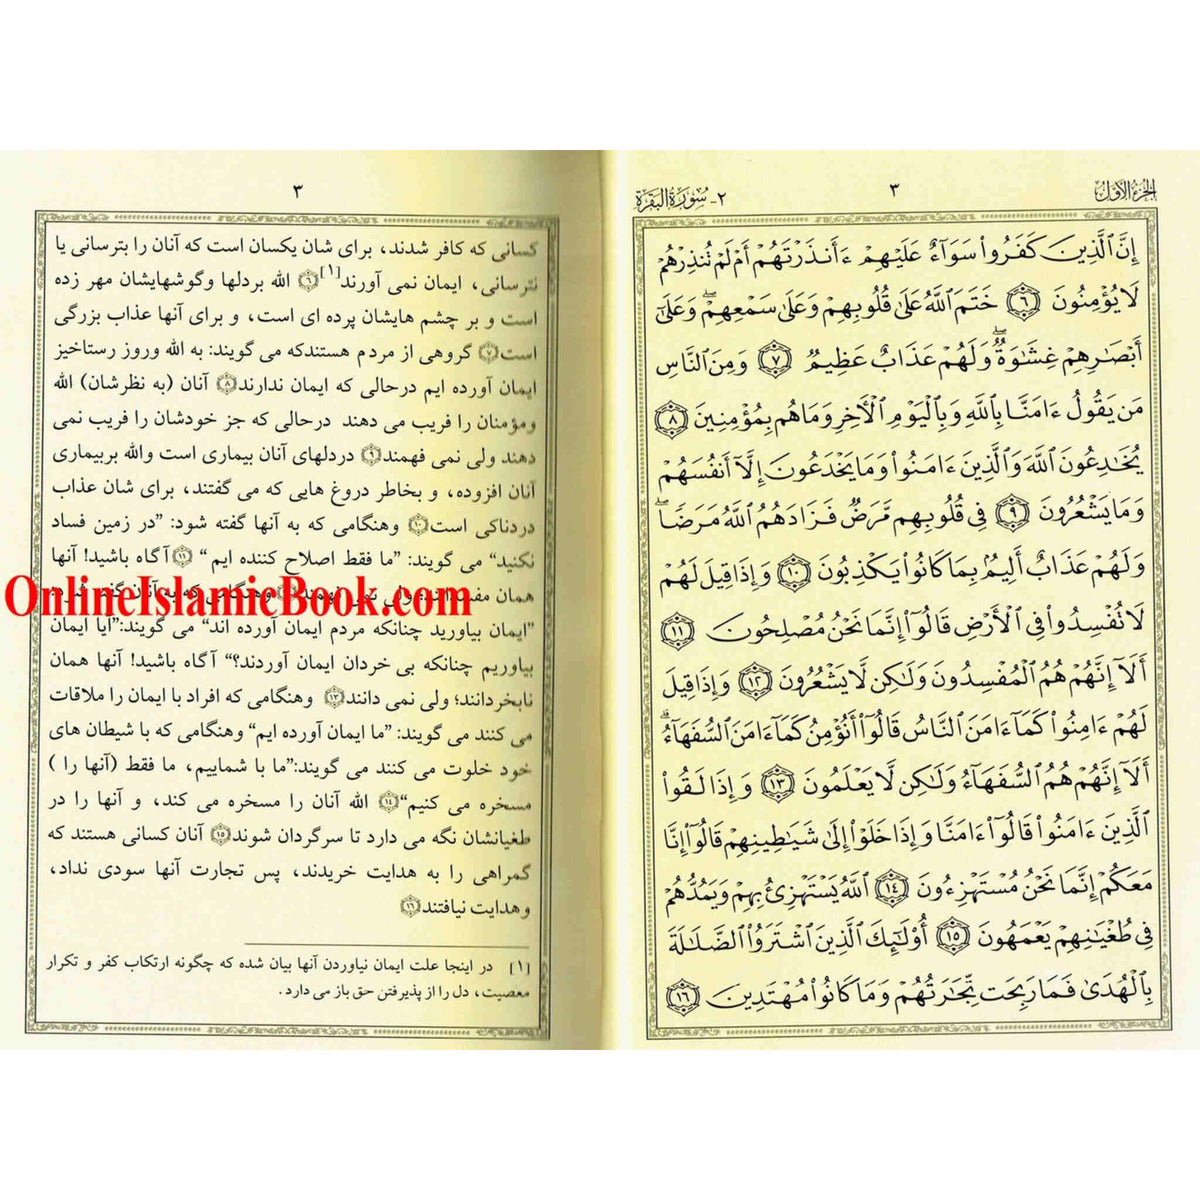 الجزء الأول
٣
٢- سورة البقرة
إِنَّ ٱلَّذِينَ كَفَرُوا۟ سَوَآءٌ عَلَيْهِمْ ءَأَنذَرْتَهُمْ أَمْ لَمْ تُنذِرْهُمْ
لَا يُؤْمِنُونَ ٦ خَتَمَ ٱللَّهُ عَلَىٰ قُلُوبِهِمْ وَعَلَىٰ سَمْعِهِمْ ۖ وَعَلَىٰٓ
أَبْصَٰرِهِمْ غِشَٰوَةٌ ۖ وَلَهُمْ عَذَابٌ عَظِيمٌ ٧ وَمِنَ ٱلنَّاسِ
مَن يَقُولُ ءَامَنَّا بِٱللَّهِ وَبِٱلْيَوْمِ ٱلْـَٔاخِرِ وَمَا هُم بِمُؤْمِنِينَ ٨
يُخَٰدِعُونَ ٱللَّهَ وَٱلَّذِينَ ءَامَنُوا۟ وَمَا يَخْدَعُونَ إِلَّآ أَنفُسَهُمْ
وَمَا يَشْعُرُونَ ٩ فِى قُلُوبِهِم مَّرَضٌ فَزَادَهُمُ ٱللَّهُ مَرَضًا ۖ
وَلَهُمْ عَذَابٌ أَلِيمٌۢ بِمَا كَانُوا۟ يَكْذِبُونَ ١٠ وَإِذَا قِيلَ لَهُمْ
لَا تُفْسِدُوا۟ فِى ٱلْأَرْضِ قَالُوٓا۟ إِنَّمَا نَحْنُ مُصْلِحُونَ ١١
أَلَآ إِنَّهُمْ هُمُ ٱلْمُفْسِدُونَ وَلَٰكِن لَّا يَشْعُرُونَ ١٢ وَإِذَا قِيلَ
لَهُمْ ءَامِنُوا۟ كَمَآ ءَامَنَ ٱلنَّاسُ قَالُوٓا۟ أَنُؤْمِنُ كَمَآ ءَامَنَ ٱلسُّفَهَآءُ ۗ
أَلَآ إِنَّهُمْ هُمُ ٱلسُّفَهَآءُ وَلَٰكِن لَّا يَعْلَمُونَ ١٣ وَإِذَا لَقُوا۟
ٱلَّذِينَ ءَامَنُوا۟ قَالُوٓا۟ ءَامَنَّا وَإِذَا خَلَوْا۟ إِلَىٰ شَيَٰطِينِهِمْ قَالُوٓا۟ إِنَّا
مَعَكُمْ إِنَّمَا نَحْنُ مُسْتَهْزِءُونَ ١٤ ٱللَّهُ يَسْتَهْزِئُ بِهِمْ وَيَمُدُّهُمْ
فِى طُغْيَٰنِهِمْ يَعْمَهُونَ ١٥ أُو۟لَٰٓئِكَ ٱلَّذِينَ ٱشْتَرَوُا۟ ٱلضَّلَٰلَةَ
بِٱلْهُدَىٰ فَمَا رَبِحَت تِّجَٰرَتُهُمْ وَمَا كَانُوا۟ مُهْتَدِينَ ١٦
٣
کسانی که کافر شدند، برای شان یکسان است که آنان را بترسانی یا
نترسانی، ایمان نمی آورند[١] ٦ الله بردلها وگوشهایشان مهر زده
است و بر چشم هایشان پرده ای است، و برای آنها عذاب بزرگی
است ٧ گروهی از مردم هستندکه می گویند: به الله وروز رستاخیز
ایمان آورده ایم درحالی که ایمان ندارند ٨ آنان (به نظرشان) الله
ومؤمنان را فریب می دهند درحالی که جز خودشان را فریب نمی
دهند ولی نمی فهمند ٩ دردلهای آنان بیماری است والله بربیماری
آنان افزوده، و بخاطر دروغ هایی که می گفتند، برای شان عذاب
دردناکی است ١٠ وهنگامی که به آنها گفته شود: ”در زمین فساد
نکنید“ می گویند: ”ما فقط اصلاح کننده ایم “ ١١ آگاه باشید! آنها
همان
OnlineIslamicBook.com
”ایمان بیاورید چنانکه مردم ایمان آورده اند“ می گویند:”آیا ایمان
بیاوریم چنانکه بی خردان ایمان آوردند؟“ آگاه باشید! آنها همان
نابخردانند؛ ولی نمی دانند ١٣ وهنگامی که افراد با ایمان را ملاقات
می کنند می گویند: ”ما ایمان آورده ایم“ وهنگامی که با شیطان های
خود خلوت می کنند می گویند:”ما با شماییم، ما فقط (آنها را )
مسخره می کنیم“ ١٤ الله آنان را مسخره می کند، و آنها را در
طغیانشان نگه می دارد تا سرگردان شوند ١٥ آنان کسانی هستند که
گمراهی را به هدایت خریدند، پس تجارت آنها سودی نداد،
وهدایت نیافتند ١٦
[١] در اینجا علت ایمان نیاوردن آنها بیان شده که چگونه ارتکاب کفر و تکرار
معصیت، دل را از پذیرفتن حق باز می دارد.